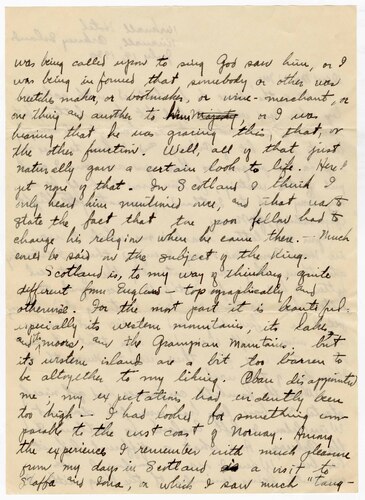 was being called upon to sing God save him, or I
was being informed that somebody or other was
breeches maker, or bootmaker, or wine-merchant, or
one thing and another to him Majesty, or I was
hearing that he was gracing this, that, or
the other function. Well, all of that just
naturally gave a certain look to life. Here I
get none of that. In Scotland I think I
only heard him mentioned once, and that was to
state the fact that the poor fellow had to
change his religion when he came there. — Much
could be said on the subject of the King.
Scotland is, to my way of thinking, quite
different from England — topographically and
otherwise. For the most part it is beautiful —
especially its western mountains, its lakes
and its moors, and the Grampian Mountains. but
its western islands are a bit too barren to
be altogether to my liking. Oban disappointed
me; my expectations had evidently been
too high — I had looked for something com-
parable to the west coast of Norway. Among
the experiences I remember with much pleasure
from my days in Scotland is a visit to
Staffa and Iona, on which I saw much "tang-